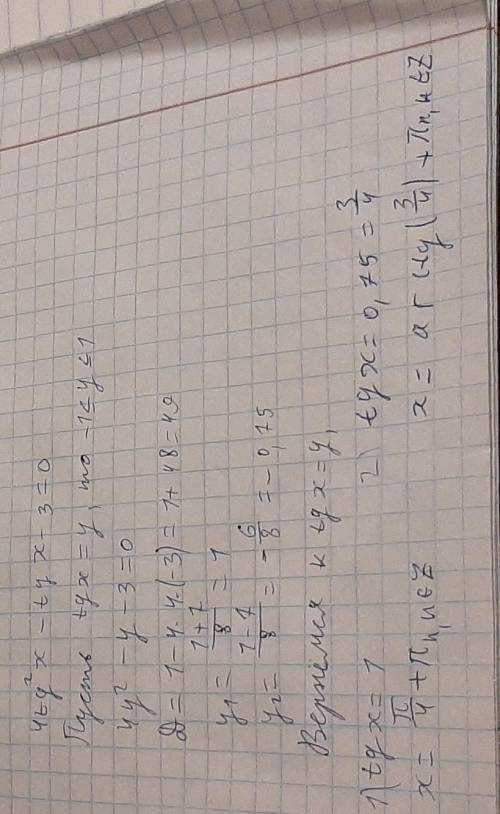 4tg²x - tgx - 3 = 0
Пусть tgx = y, то -1 ≤ y ≤ 1
4y² - y - 3 = 0
D = 1 - 4·4·(-3) = 1 + 48 = 49
y₁ = (1+7)/8 = 1
y₂ = (1-7)/8 = -6/8 = -0,75
Вернемся к tgx = y,
1) tgx = 1
x = π/4 + πn, n∈Z
2) tgx = 0,75 = 3/4
x = arctg(3/4) + πn, n∈Z